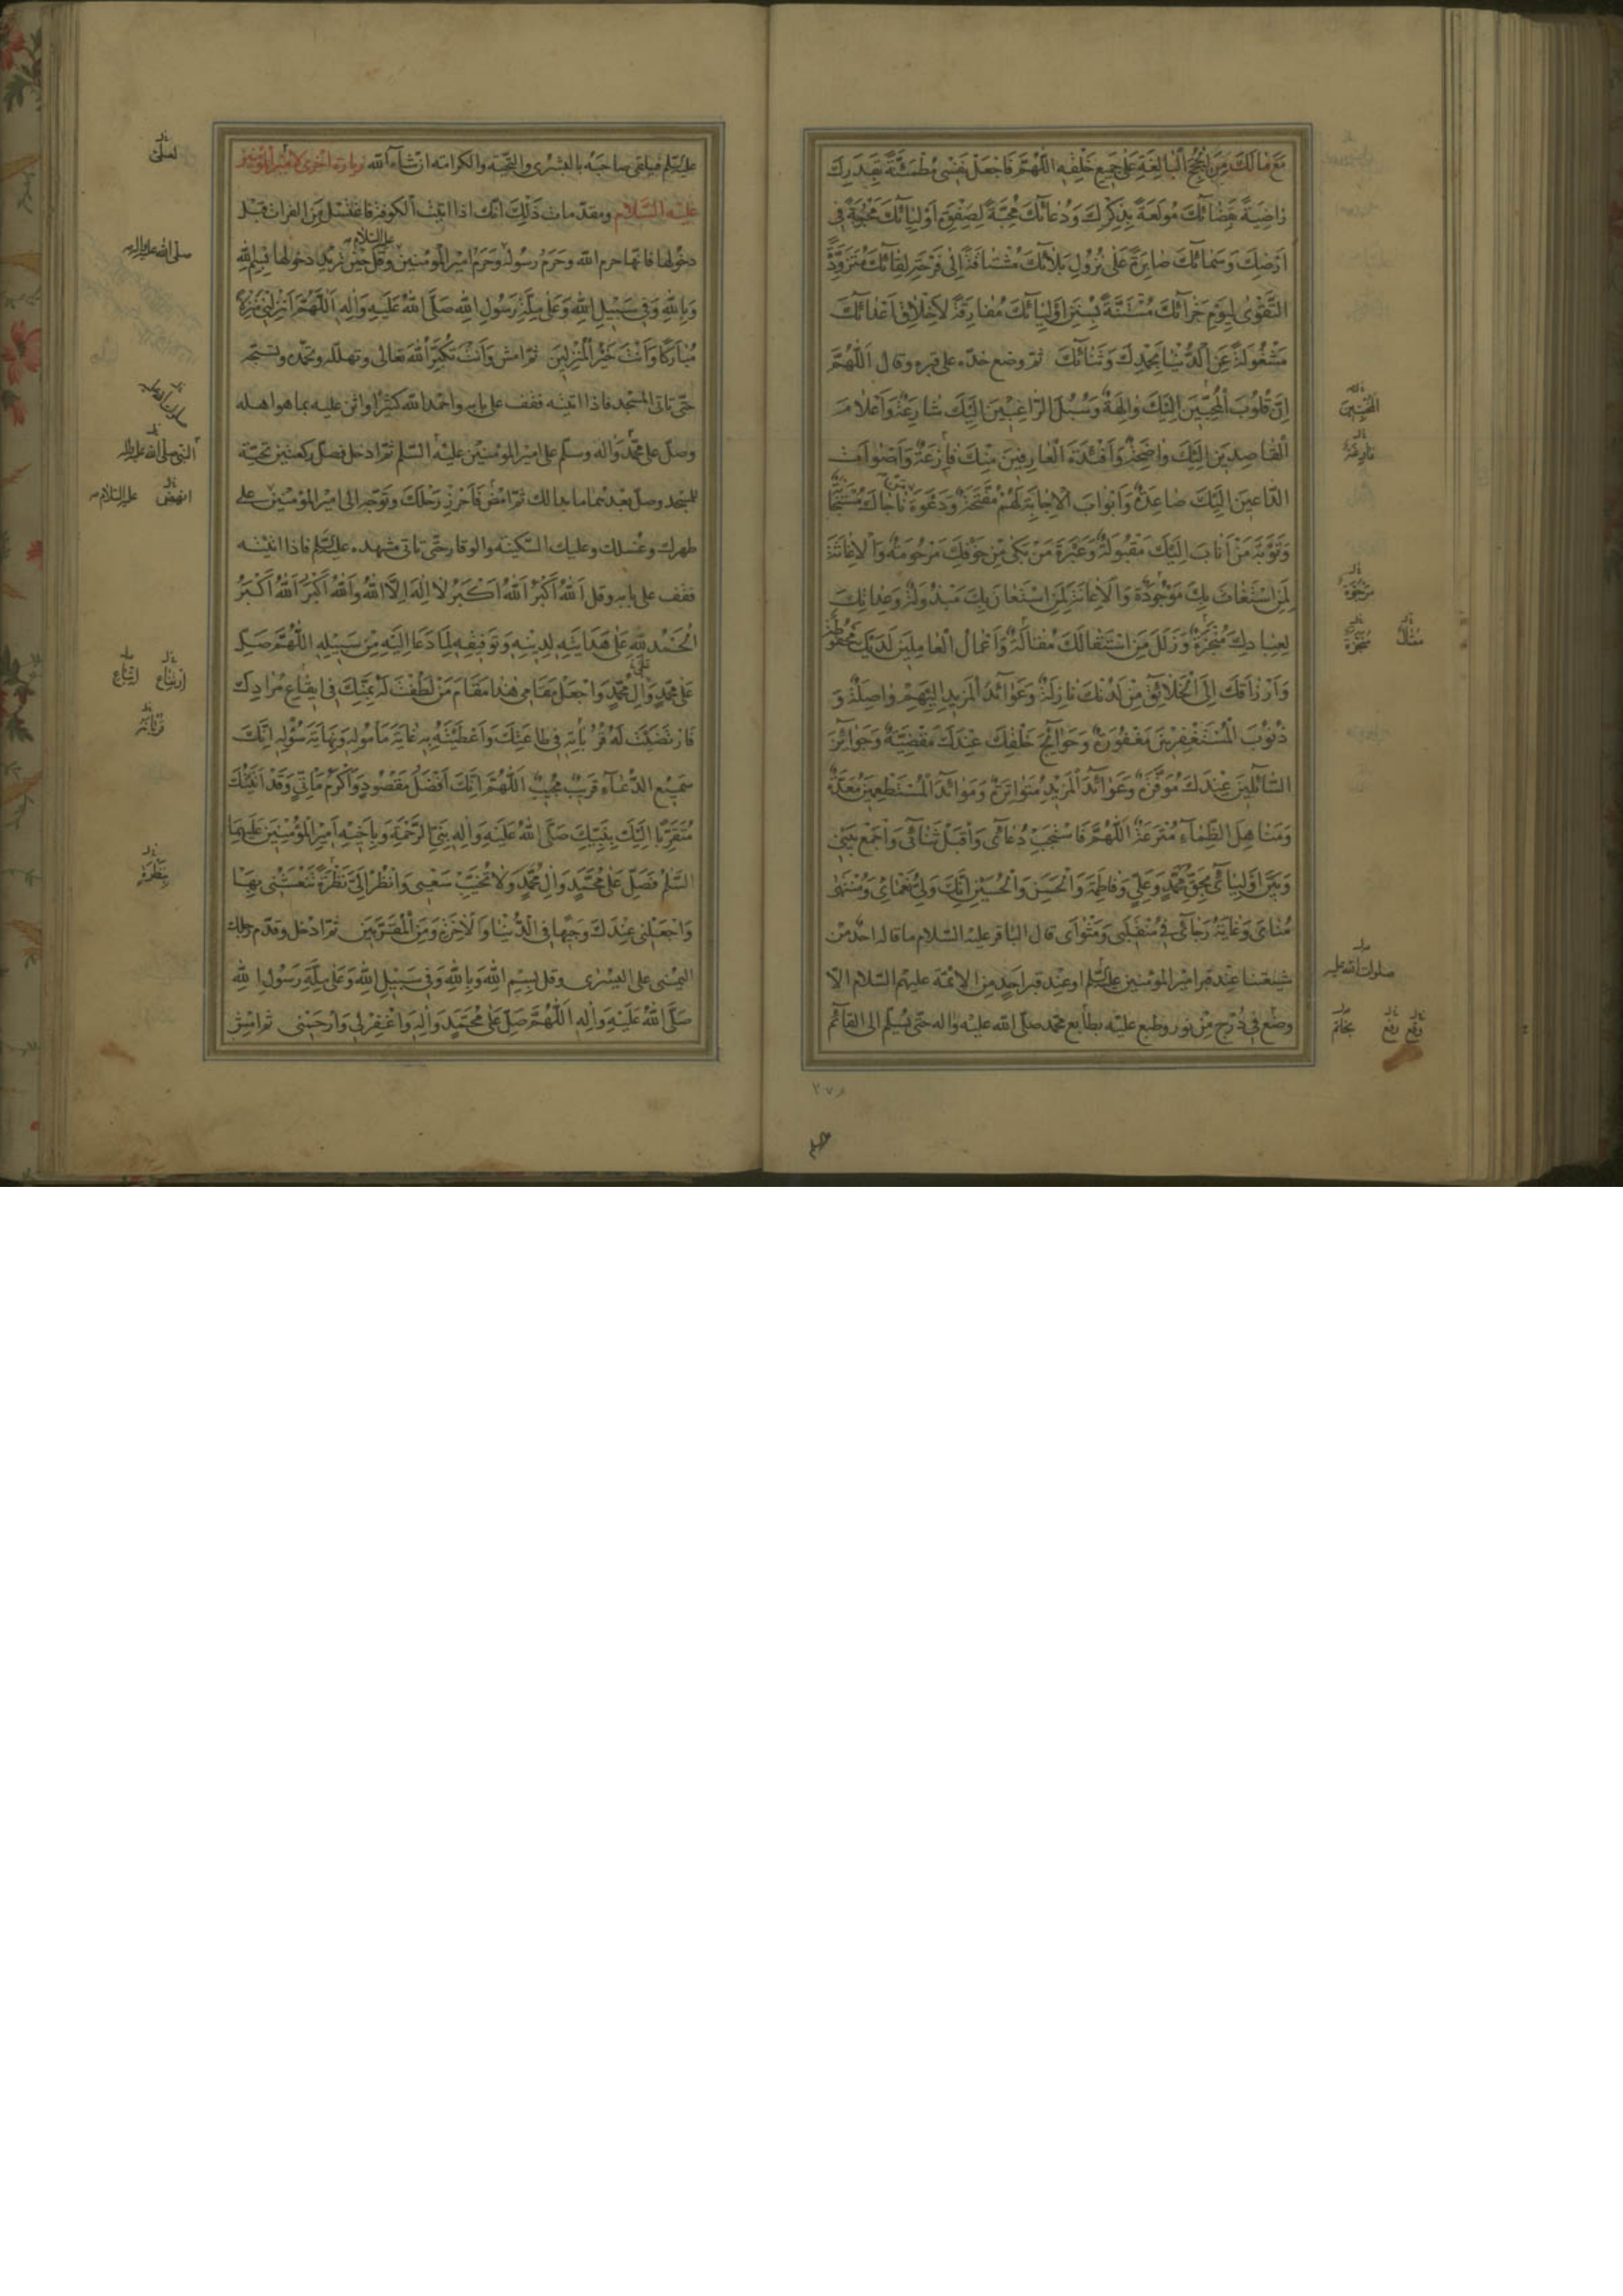 مَعَ مٰا لَكَ مِنَ الْحُجَجِ الْبٰالِغَةِ عَلٰى جَمِيعِ خَلْقِهِ اَللّٰهُمَّ فَاجْعَلْ نَفْسِى مُطْمَئِنَّةً بِقَدَرِكَ
رٰاضِيَةً بِقَضٰائِكَ مُولَعَةً بِذِكْرِكَ وَدُعٰائِكَ مُحِبَّةً لِصَفْوَةِ اَوْلِيٰائِكَ مَحْبُوبَةً فِى
اَرْضِكَ وَسَمٰائِكَ صٰابِرَةً عَلٰى نُزُولِ بَلٰائِكَ مُشْتٰاقَةً اِلٰى فَرْحَةِ لِقٰائِكَ مُتَزَوِّدَةً
التَّقْوٰى لِيَوْمِ جَزٰائِكَ مُسْتَنَّةً بِسُنَنِ اَوْلِيٰائِكَ مُفٰارِقَةً لِاَخْلٰاقِ اَعْدٰائِكَ
مَشْغُولَةً عَنِ الدُّنْيٰا بِحَمْدِكَ وَثَنٰائِكَ ثم وضع خدّه على قبره وقال اَللّٰهُمَّ
اِنَّ قُلُوبَ الْمُحِبّينَ اِلَيْكَ وٰالِهَةٌ وَسُبُلَ الرّٰاغِبِينَ اِلَيْكَ شٰارِعَةٌ وَاَعْلٰامَ
الْقٰاصِدِينَ اِلَيْكَ وٰاضِحَةٌ وَاَفْئِدَةَ الْعٰارِفِينَ مِنْكَ فٰازِعَةٌ وَاَصْوٰاتَ
الدّٰاعِينَ اِلَيْكَ صٰاعِدَةٌ وَاَبْوٰابَ الْاِجٰابَةِ لَهُمْ مُفَتَّحَةٌ وَدَعْوَةَ مَنْ نٰاجٰاكَ مُسْتَجٰابَةٌ
وَتَوْبَةَ مَنْ اَنٰابَ اِلَيْكَ مَقْبُولَةٌ وَعَبْرَةَ مَنْ بَكٰى مِنْ خَوْفِكَ مَرْحُومَةٌ وَالْاِغٰاثَةَ
لِمَنِ اسْتَغٰاثَ بِكَ مَوْجُودَةٌ وَالْاِعٰانَةَ لِمَنِ اسْتَعٰانَ بِكَ مَبْذُولَةٌ وَعِدٰاتِكَ
لِعِبٰادِكَ مُنْجَزَةٌ وَزَلَلَ مَنِ اسْتَقٰالَكَ مُقٰالَةٌ وَاَعْمٰالَ الْعٰامِلِينَ لَدَيْكَ مَحْفُوظَةٌ
وَاَرْزٰاقَكَ اِلَى الْخَلٰائِقِ مِنْ لَدُنْكَ نٰازِلَةٌ وَعَوٰائِدَ الْمَزِيدِ اِلَيْهِمْ وٰاصِلَةٌ وَ
ذُنُوبَ الْمُسْتَغْفِرِينَ مَغْفُورَةٌ وَحَوٰائِجَ خَلْقِكَ عِنْدَكَ مَقْضِيَّةٌ وَجَوٰائِزَ
السّٰائِلِينَ عِنْدَكَ مُوَفَّرَةٌ وَعَوٰائِدَ الْمَزِيدِ مُتَوٰاتِرَةٌ وَمَوٰائِدَ الْمُسْتَطْعِمِينَ مُعَدَّةٌ
وَمَنٰاهِلَ الظِّمٰاءِ مُتْرَعَةٌ اَللّٰهُمَّ فَاسْتَجِبْ دُعٰائِى وَاقْبَلْ ثَنٰائِى وَاجْمَعْ بَيْنِى
وَبَيْنَ اَوْلِيٰائِى بِحَقِّ مُحَمَّدٍ وَعَلِيٍّ وَفٰاطِمَةَ وَالْحَسَنِ وَالْحُسَيْنِ اِنَّكَ وَلِىُّ نَعْمٰائِى وَمُنْتَهٰى
مُنٰاىَ وَغٰايَةُ رَجٰائِى فِى مُنْقَلَبِى وَمَثْوٰاىَ قال الباقر عليه السّلام ما قاله احد من
شيعتنا عند قبر امير المؤمنين عليه السّلم او عند قبر احد من الائمّة عليهم السّلام الّا
وضع فى دُرج من نور وطبع عليه بطابع محمّد صلّى الله عليه واله حتّى يسلّم الى القائم
المُخْبِتِينَ
مرجوّة
منجزة
صلوات الله عليه
وقع رفع بخاتم
عليه السّلم فيلقى صاحبه بالبشرى والتحيّة والكرامة ان شاء الله زيارة اخرى لامير المؤمنين
عليه السّلام ومقدّمات ذلك انّك اذا اتيت الكوفة فاغتسل من الفرات قبل
دخولها فانّها حرم الله وحرم رسوله وحرم امير المؤمنين عليه السّلام وقل حين تريد دخولها بِسْمِ اللّٰهِ
وَبِاللّٰهِ وَفِى سَبِيلِ اللّٰهِ وَعَلٰى مِلَّةِ رَسُولِ اللّٰهِ صَلَّى اللّٰهُ عَلَيْهِ وَاٰلِهِ اَللّٰهُمَّ اَنْزِلْنِى مُنْزَلاً
مُبٰارَكاً وَاَنْتَ خَيْرُ الْمُنْزِلِينَ ثمّ امش وانت تكبّر الله تعالى وتهلّله وتحمّده وتسبّحه
حتّى تاتى المسجد فاذا اتيته فقف على بابه واحمد الله كثيرا واثن عليه بما هو اهله
وصلّ على محمّد واله وسلّم على امير المؤمنين عليه السّلم ثمّ ادخل فصلّ ركعتين تحيّة
للمسجد وصلّ بعدهما ما بدا لك ثمّ امض فاحرز رحلك وتوجّه الى امير المؤمنين على
طهرك وغسلك وعليك السّكينة والوقار حتّى تاتى مشهده عليه السّلم فاذا اتيته
فقف على بابه وقل اَللّٰهُ اَكْبَرُ اَللّٰهُ اَكْبَرُ لٰا اِلٰهَ اِلَّا اللّٰهُ وَاللّٰهُ اَكْبَرُ اَللّٰهُ اَكْبَرُ
اَلْحَمْدُ لِلّٰهِ عَلٰى هِدٰايَتِهِ لِدِينِهِ وَتَوْفِيقِهِ لِمٰا دَعٰا اِلَيْهِ مِنْ سَبِيلِهِ اَللّٰهُمَّ صَلِّ
عَلٰى مُحَمَّدٍ وَاٰلِ مُحَمَّدٍ وَاجْعَلْ مَقٰامِى هٰذٰا مَقٰامَ مَنْ لَطُفْتَ لَهُ بِمَنِّكَ فِى اِيقٰاعِ مُرٰادِكَ
فَارْتَضَيْتَ لَهُ قُرُبٰاتِهِ فِى طٰاعَتِكَ وَاَعْطَيْتَهُ بِهِ غٰايَةَ مَأْمُولِهِ وَنِهٰايَةَ سُؤْلِهِ اِنَّكَ
سَمِيعُ الدُّعٰاءِ قَرِيبٌ مُجِيبٌ اَللّٰهُمَّ اِنَّكَ اَفْضَلُ مَقْصُودٍ وَاَكْرَمُ مَأْتِىٍّ وَقَدْ اَتَيْتُكَ
مُتَقَرِّباً اِلَيْكَ بِنَبِيِّكَ صَلَّى اللّٰهُ عَلَيْهِ وَاٰلِهِ نَبِىِّ الرَّحْمَةِ وَبِاَخِيهِ اَمِيرِ الْمُؤْمِنِينَ عَلَيْهِمَا
السَّلٰمُ فَصَلِّ عَلٰى مُحَمَّدٍ وَاٰلِ مُحَمَّدٍ وَلٰا تُخَيِّبْ سَعْيِى وَانْظُرْ اِلَىَّ نَظْرَةً تَنْعَشُنِى بِهٰا
وَاجْعَلْنِى عِنْدَكَ وَجِيهاً فِى الدُّنْيٰا وَالْاٰخِرَةِ وَمِنَ الْمُقَرَّبِينَ ثمّ ادخل وقدّم رجلك
اليمنى على اليسرى وقل بِسْمِ اللّٰهِ وَبِاللّٰهِ وَفِى سَبِيلِ اللّٰهِ وَعَلٰى مِلَّةِ رَسُولِ اللّٰهِ
صَلَّى اللّٰهُ عَلَيْهِ وَاٰلِهِ اَللّٰهُمَّ صَلِّ عَلٰى مُحَمَّدٍ وَاٰلِهِ وَاغْفِرْ لِى وَارْحَمْنِى ثمّ امش
صلّى الله عليه واله
النبى صلّى الله عليه واله
انهض عليه السّلام
ارتياع